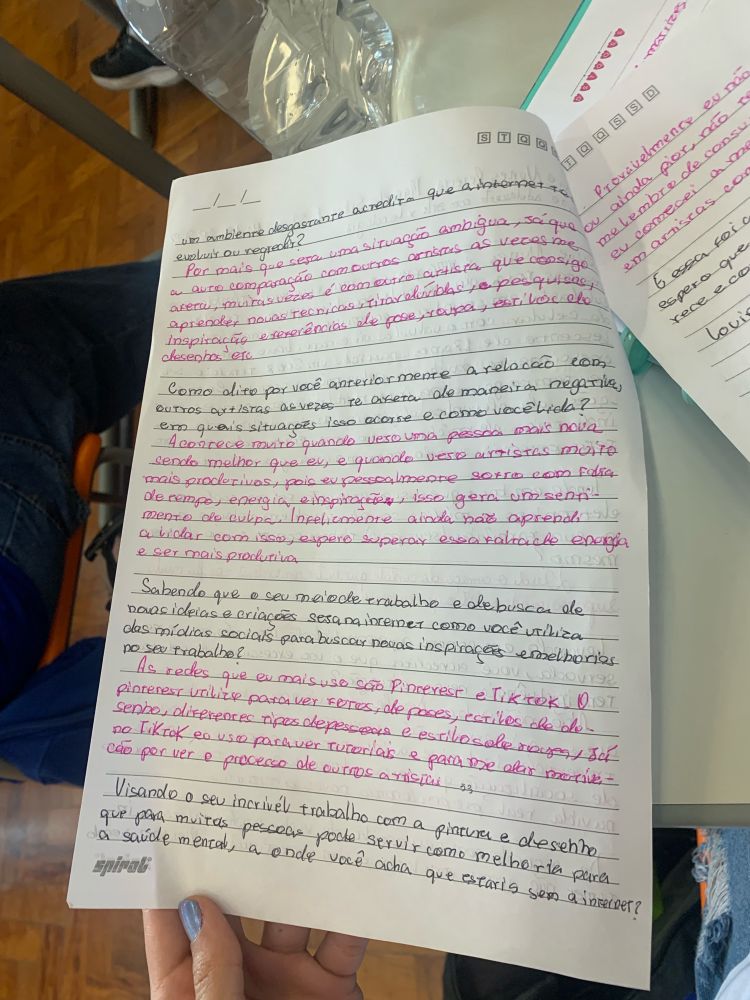 S T Q Q
__/__/__
um ambiente desgastante acredita que a internet te
evoluir ou regredir?
Por mais que seja uma situação ambigua, já que
a auto comparação com outros artistas as vezes me
afeta, muitas vezes é com outro artista que consigo
aprender novas tecnicas, tirar dúvidas, e pesquisas,
inspiração e referências de pose, roupa, estilos de
desenhos etc
Como dito por você anteriormente a relação com
outros artistas as vezes te afeta de maneira negativa,
em quais situações isso ocorre e como você lida?
Acontece muito quando vejo uma pessoa mais nova
sendo melhor que eu, e quando vejo artistas muito
mais produtivos, pois eu pessoalmente sofro com falta
de tempo, energia e inspiração, isso gera um senti-
mento de culpa. Infelizmente ainda não aprendi
a lidar com isso, espero superar essa falta de energia
e ser mais produtiva
Sabendo que o seu meio de trabalho e de busca de
novas ideias e criações seja na internet como você utiliza
das mídias sociais para buscar novas inspirações e melhorias
no seu trabalho?
As redes que eu mais uso são Pinterest e TikTok O
pinterest utilizo para ver fotos, de poses, estilos de de-
senho, diferentes tipos de pessoas e estilos de roupa, já
no TikTok eu uso para ver tutoriais e para me dar motiva-
cão por ver o processo de outros artistas
Visando o seu incrível trabalho com a pintura e desenho
que para muitas pessoas pode servir como melhoria para
a saúde mental, a onde você acha que estaria sem a internet?
spiral
T Q Q S S D
Provavelmente eu não
ou ainda pior, não
me lembro de
eu comecei a me
em artistas com
E essa foi a
espero que
rece e co
matrizes